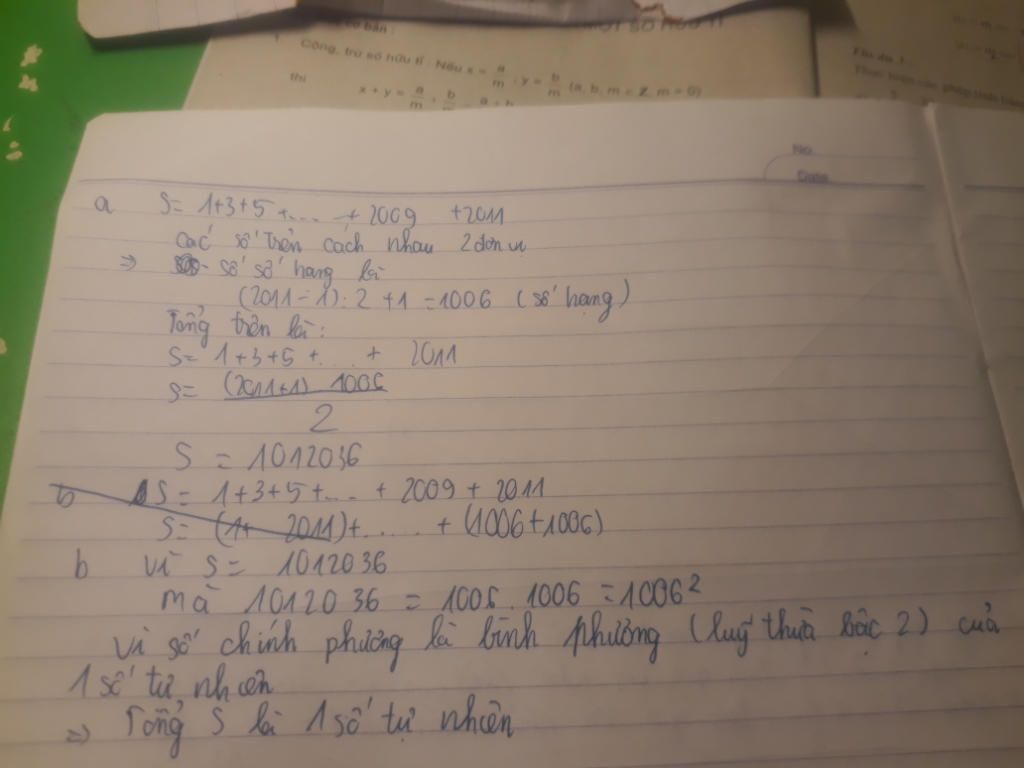 1. Cộng, trừ số hữu tỉ : Nếu x = a/m ; y = b/m (a, b, m ∈ Z, m ≠ 0)
thì x + y = a/m + b/
No.
Date
a S = 1+3+5 +.... + 2009 +2011
các số trên cách nhau 2 đơn vị
⇒ số số hạng là
(2011 - 1) : 2 + 1 = 1006 (số hạng)
Tổng trên là :
S = 1+3+5 +... + 2011
S = (2011+1) 1006
2
S = 1012036
b S = 1+3+5+... + 2009 + 2011
S = (1+ 2011)+..... + (1006+1006)
b Vì S = 1012036
mà 1012036 = 1006 . 1006 = 1006²
Vì số chính phương là bình phương (luỹ thừa bậc 2) của
1 số tự nhiên
⇒ Tổng S là 1 số tự nhiên